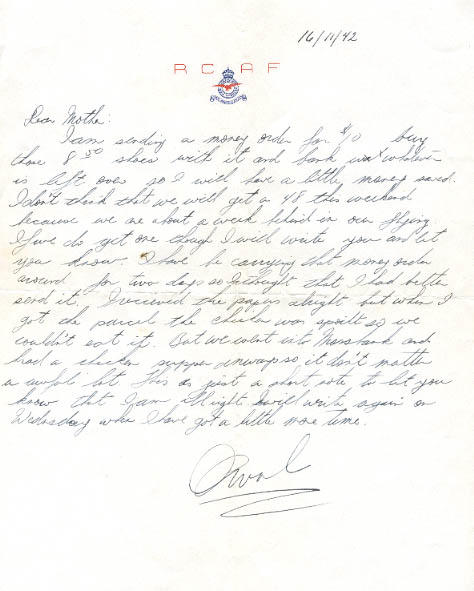 16/11/42
R C A F
Dear Mother:
I am sending a money order for $10 buy
those 8 50 shoes with it and bank whatever
is left over so I will have a little money saved.
I don't think that we will get a 48 this weekend
because we are about a week behind in our flying
If we do get one though I will write you and let
you know. I have be carrying that money order
around for two days so I thought that I had better
send it. I received the papers alright but when I
got the parcel the chicken was spoilt so we
couldn't eat it. But we went into and
had a chicken supper anyways so it didn't matter
a awful lot. This is just a short note to let you
know that I am alright. I will write again on
Wednesday when I have got a little more time.
Orval